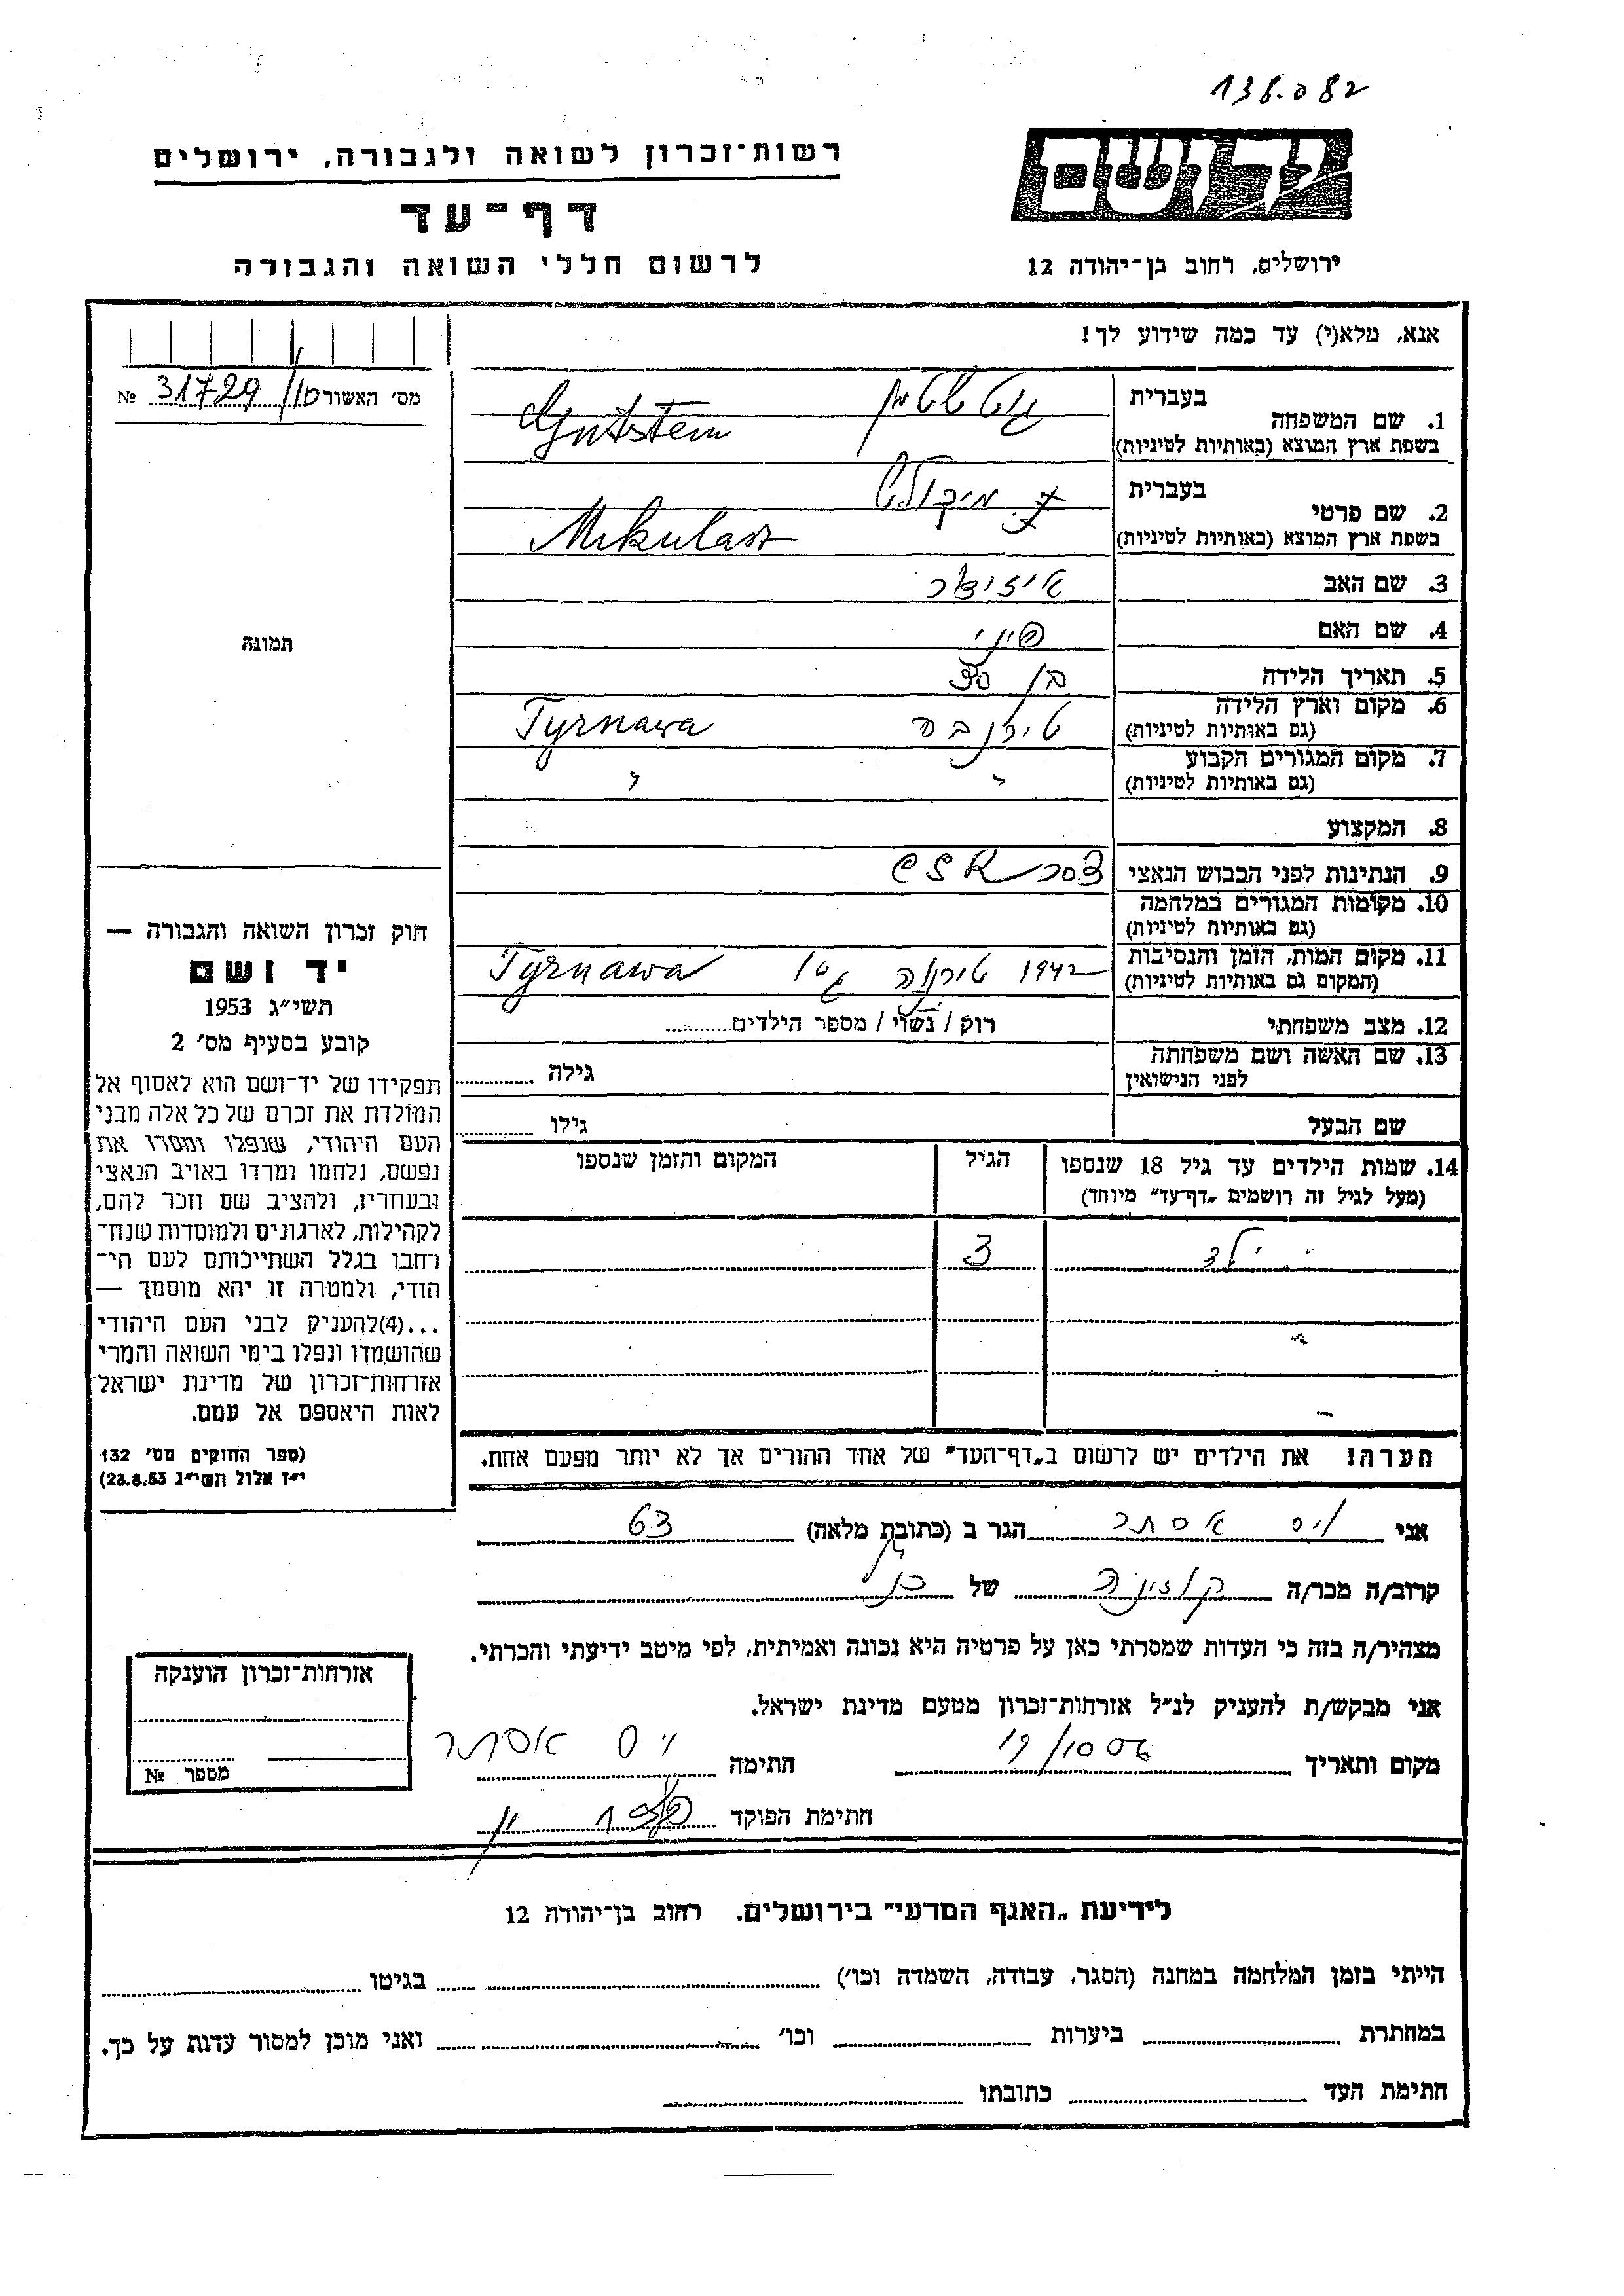 138.082
רשות־זכרון לשואה ולגבורה, ירושלים
דף־עד
לרשום חללי השואה והגבורה
יד ושם
ירושלים, רחוב בן־יהודה 12
אנא, מלא(י) עד כמה שידוע לך!
מס׳ האשור 10/ 31729 №
תמונה
1. שם המשפחה
בעברית
בשפת ארץ המוצא (באותיות לטיניות)
2. שם פרטי
בעברית מיקולש
בשפת ארץ המוצא (באותיות לטיניות) Mikulasz
3. שם האב
4. שם האם
5. תאריך הלידה בן 30
6. מקום וארץ הלידה טירנבה Tyrnawa
(גם באותיות לטיניות)
7. מקום המגורים הקבוע " "
(גם באותיות לטיניות)
8. המקצוע
9. הנתינות לפני הכבוש הנאצי
10. מקומות המגורים במלחמה
(גם באותיות לטיניות)
11. מקום המות, הזמן והנסיבות 1942 Tyrnawa
(המקום גם באותיות לטיניות)
12. מצב משפחתי רוק / נשוי / מספר הילדים
13. שם האשה ושם משפחתה גילה
לפני הנישואין
שם הבעל גילו
14. שמות הילדים עד גיל 18 שנספו הגיל המקום והזמן שנספו
(מעל לגיל זה רושמים „דף־עד״ מיוחד)
ילד 3
הערה! את הילדים יש לרשום ב„דף־העד״ של אחד ההורים אך לא יותר מפעם אחת.
חוק זכרון השואה והגבורה —
יד ושם
תשי״ג 1953
קובע בסעיף מס׳ 2
תפקידו של יד־ושם הוא לאסוף אל
המולדת את זכרם של כל אלה מבני
העם היהודי, שנפלו ומסרו את
נפשם, נלחמו ומרדו באויב הנאצי
ובעוזריו, ולהציב שם וזכר להם,
לקהילות, לארגונים ולמוסדות שנח־
רבו בגלל השתייכותם לעם הי־
הודי, ולמטרה זו יהא מוסמך —
...(4)להעניק לבני העם היהודי
שהושמדו ונפלו בימי השואה והמרי
אזרחות־זכרון של מדינת ישראל
לאות היאספם אל עמם.
(ספר החוקים מס׳ 132
י״ז אלול תשי״ג 23.8.53)
אני ויס אסתר הגר ב (כתובת מלאה) 63
קרוב/ה מכר/ה של
מצהיר/ה בזה כי העדות שמסרתי כאן על פרטיה היא נכונה ואמיתית, לפי מיטב ידיעתי והכרתי.
אני מבקש/ת להעניק לנ״ל אזרחות־זכרון מטעם מדינת ישראל.
מקום ותאריך 19/10 56 חתימה ויס אסתר
חתימת הפוקד
אזרחות־זכרון הוענקה
מספר №
לידיעת „האגף המדעי״ בירושלים, רחוב בן־יהודה 12
הייתי בזמן המלחמה במחנה (הסגר, עבודה, השמדה וכו׳) בגיטו
במחתרת ביערות וכו׳ ואני מוכן למסור עדות על כך.
חתימת העד כתובתו